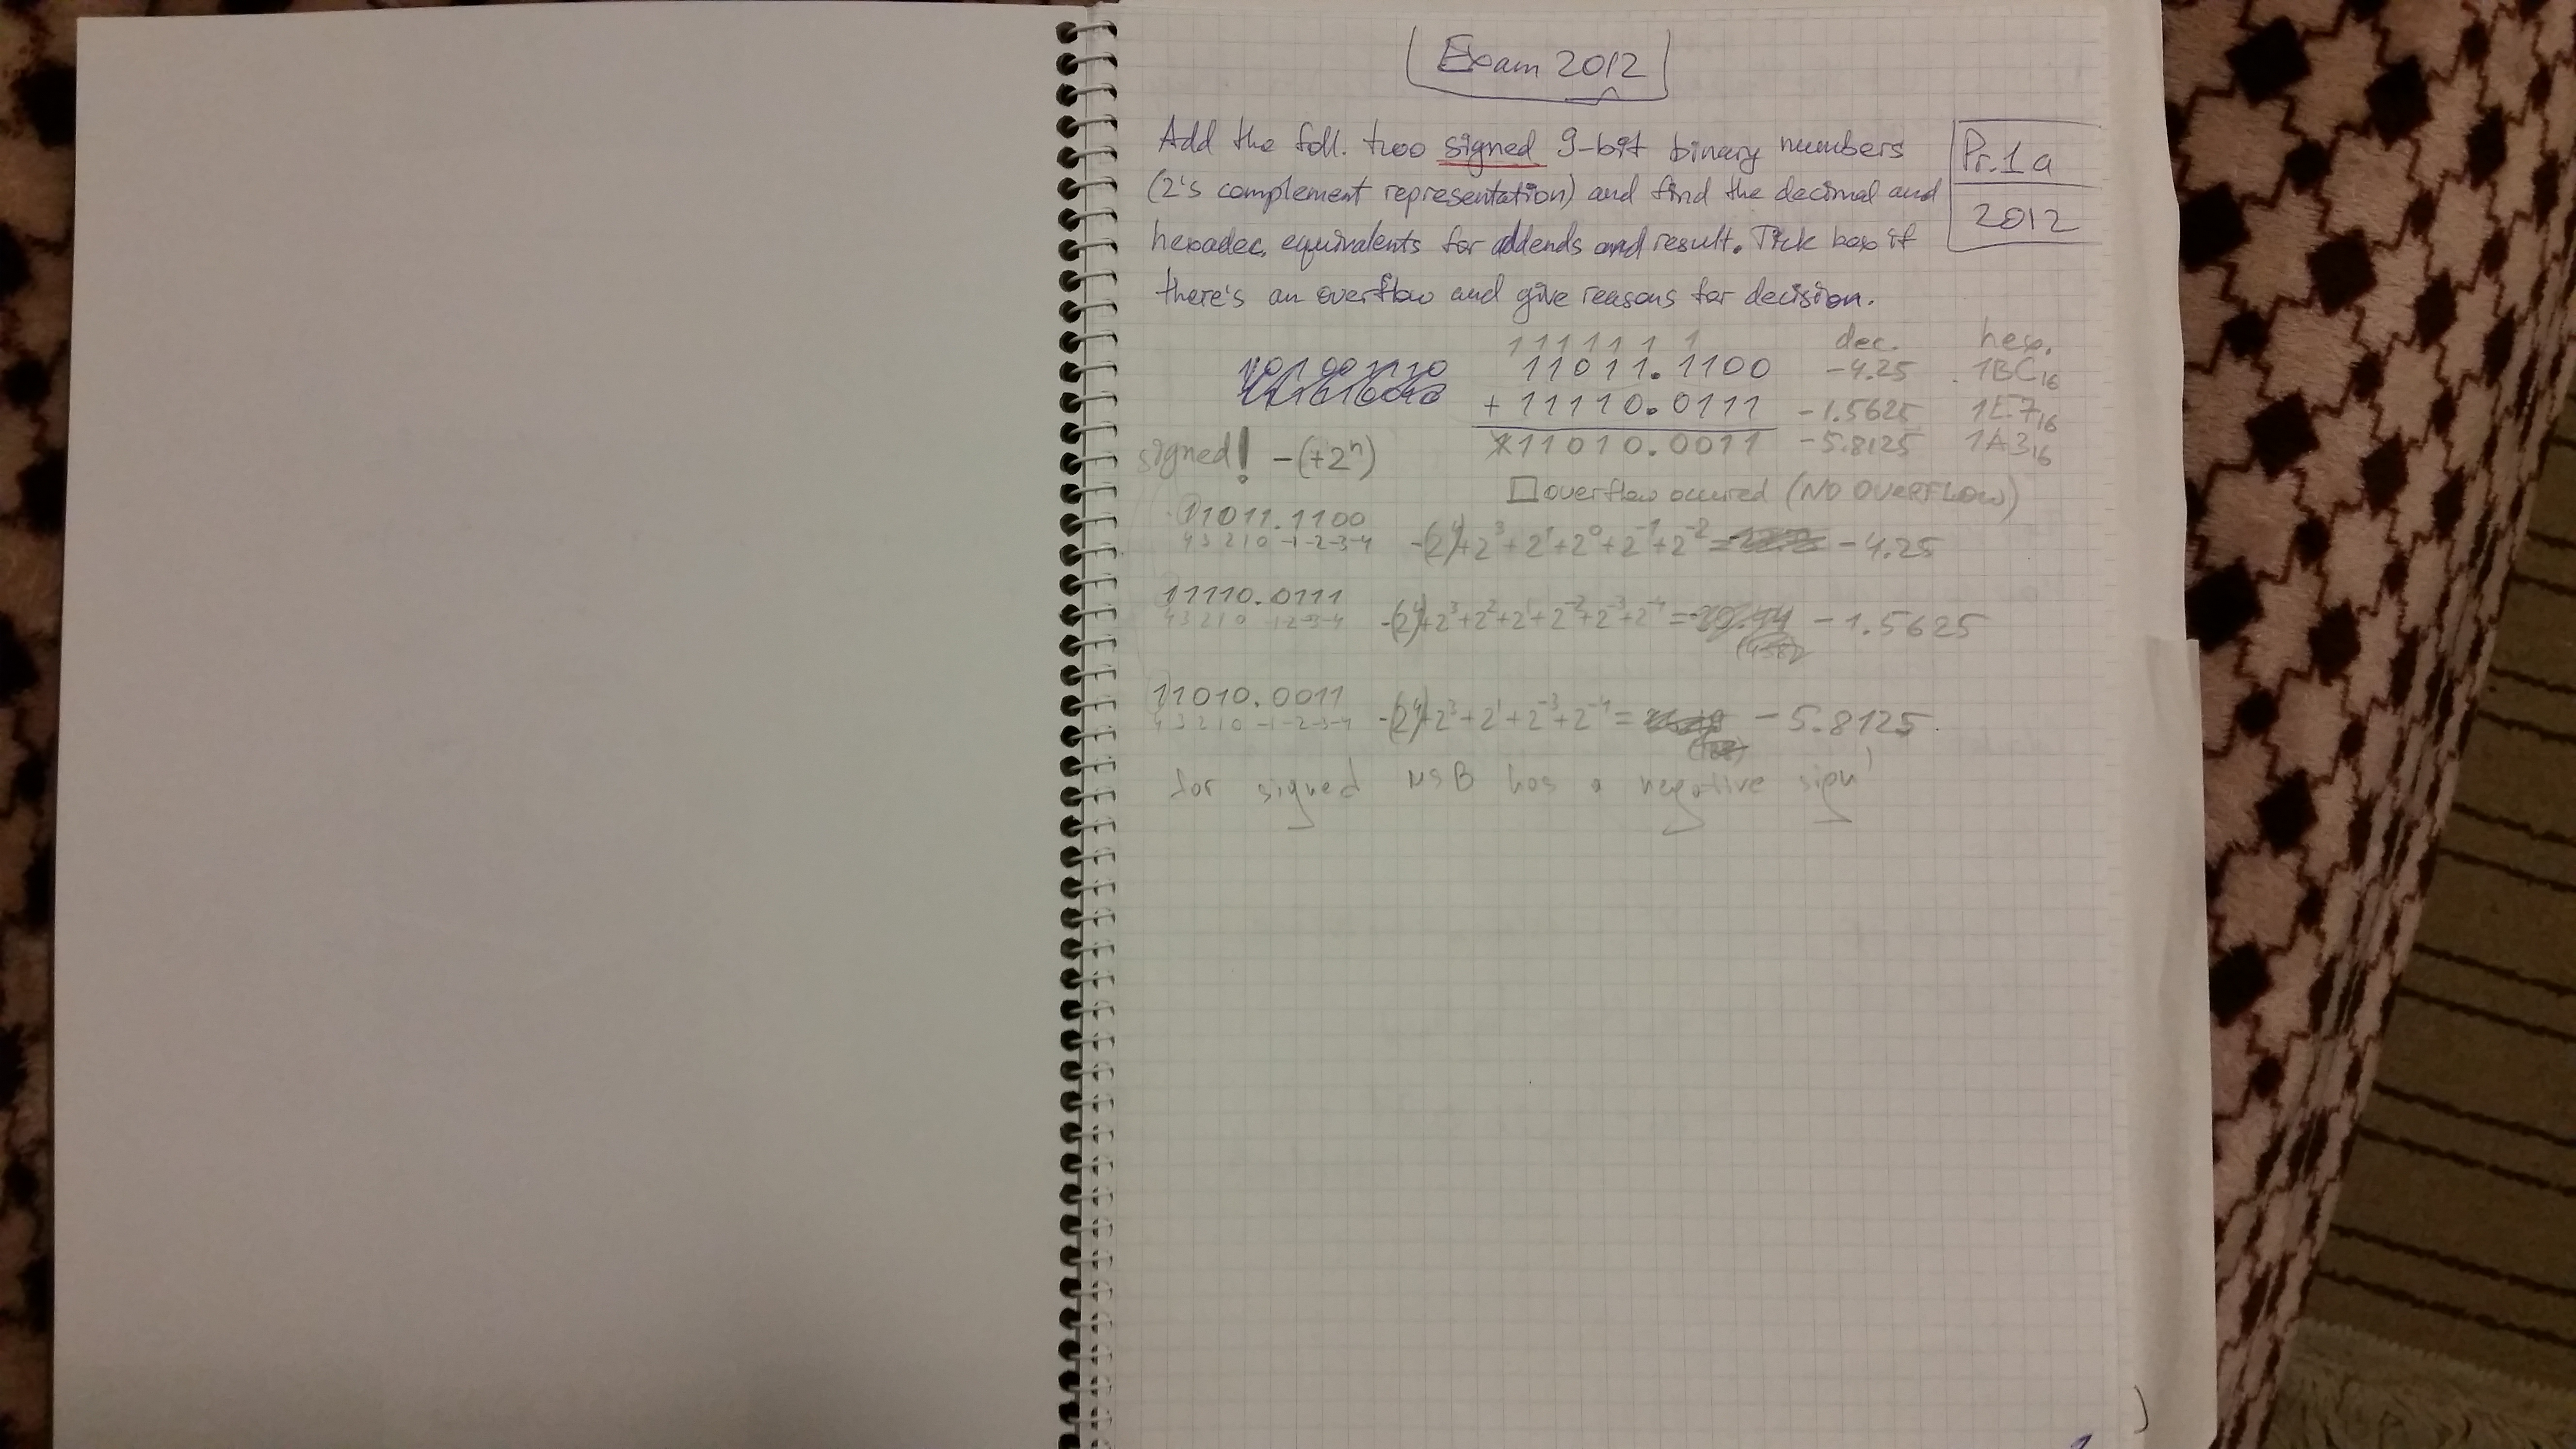 Exam 2012
Add the foll. two signed 9-bit binary numbers
(2's complement representation) and find the decimal and
hexadec. equivalents for addends and result. Tick box if
there's an overflow and give reasons for decision.
Pr.1a
2012
111111 1
dec. hex.
11011.1100 -4.25 1BC₁₆
+ 11110.0111 -1.5625 1E7₁₆
11010.0011 -5.8125 1A3₁₆
signed! -(+2ⁿ)
□ overflow occured (NO OVERFLOW)
11011.1100
4 3 2 1 0 -1-2-3-4
-(2⁴)+2³+2¹+2⁰+2⁻¹+2⁻²= -4.25
11110.0111
4 3 2 1 0 -1-2-3-4
-(2⁴)+2³+2²+2¹+2⁻²+2⁻³+2⁻⁴= -1.5625
11010.0011
4 3 2 1 0 -1-2-3-4
-(2⁴)+2³+2¹+2⁻³+2⁻⁴= -5.8125
for signed MSB has a negative sign!